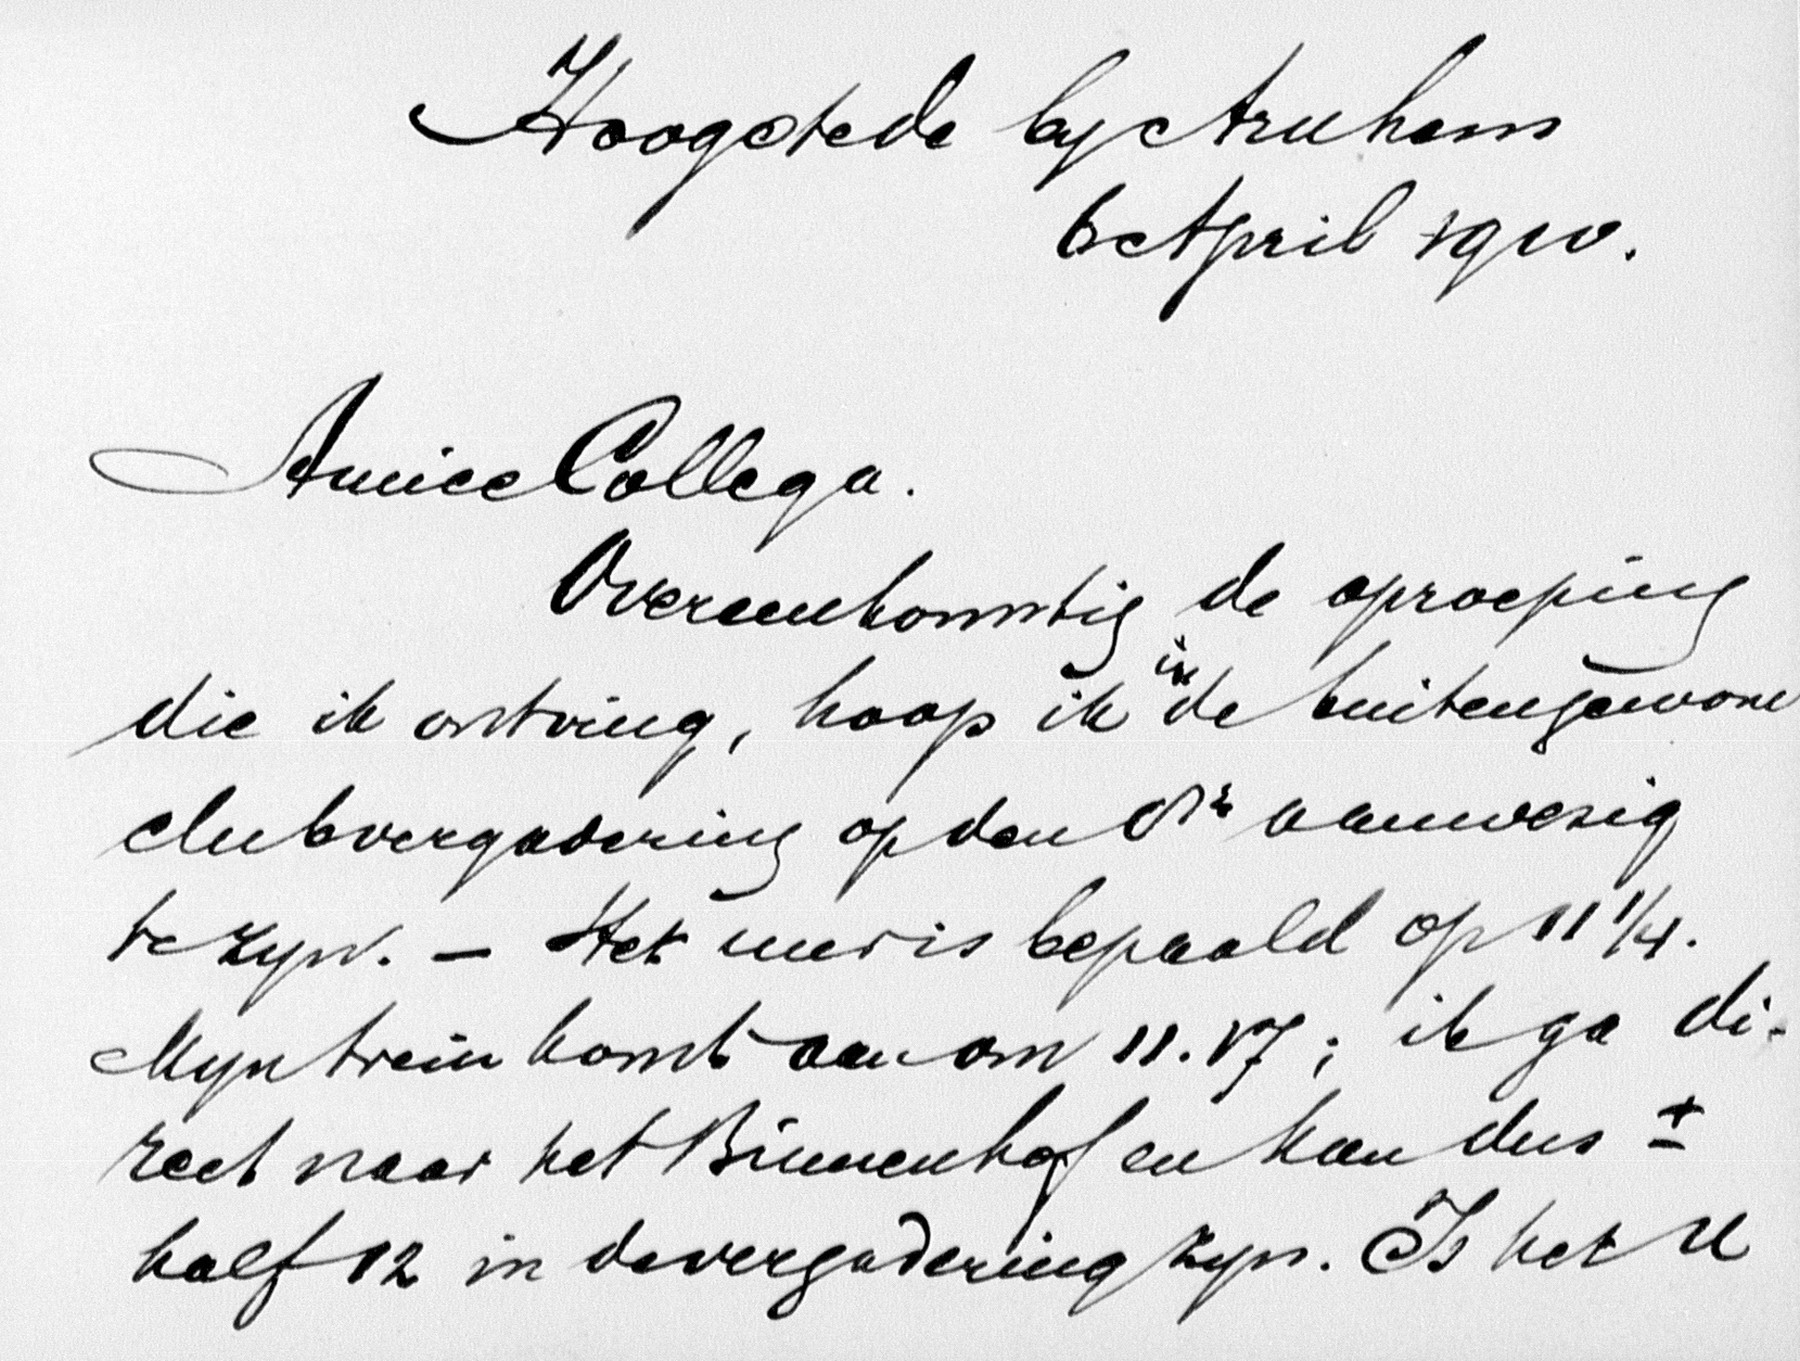 Hoogstede by Arnhem
6 April 1910.
Amice Collega.
Overeenkomstig de oproeping
die ik ontving, hoop ik in de buitengewone
clubvergadering op den aanwezig
te zyn. — Het uur is bepaald op 11 1/4.
Myn trein komt aan om 11.17; ik ga di-
rect naar het Binnenhof en kan dus ±
half 12 in de vergadering zyn. Is het U